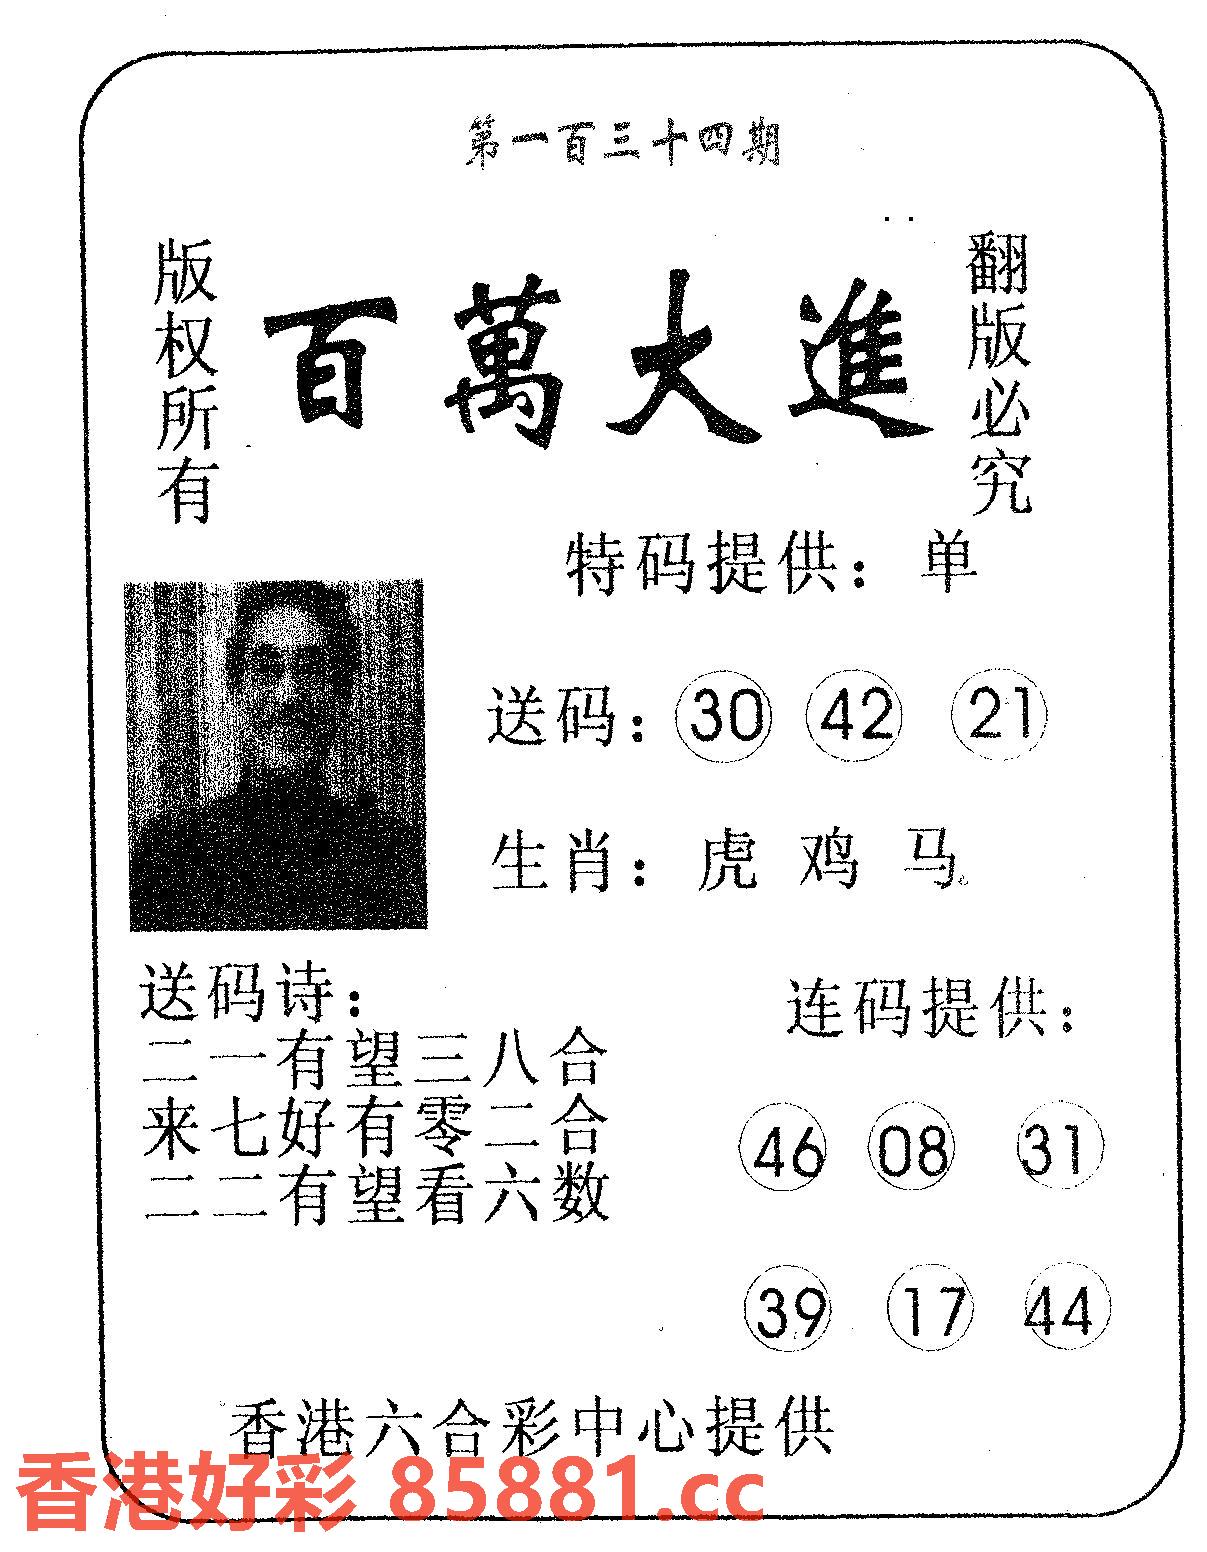 第一百三十四期
版权所有
百萬大進
翻版必究
特码提供：单
送码：30 42 21
生肖：虎 鸡 马
送码诗：
二一有望三八合
来七好有零二合
二二有望看六数
连码提供：
46 08 31
39 17 44
香港六合彩中心提供
香港好彩 85881.cc